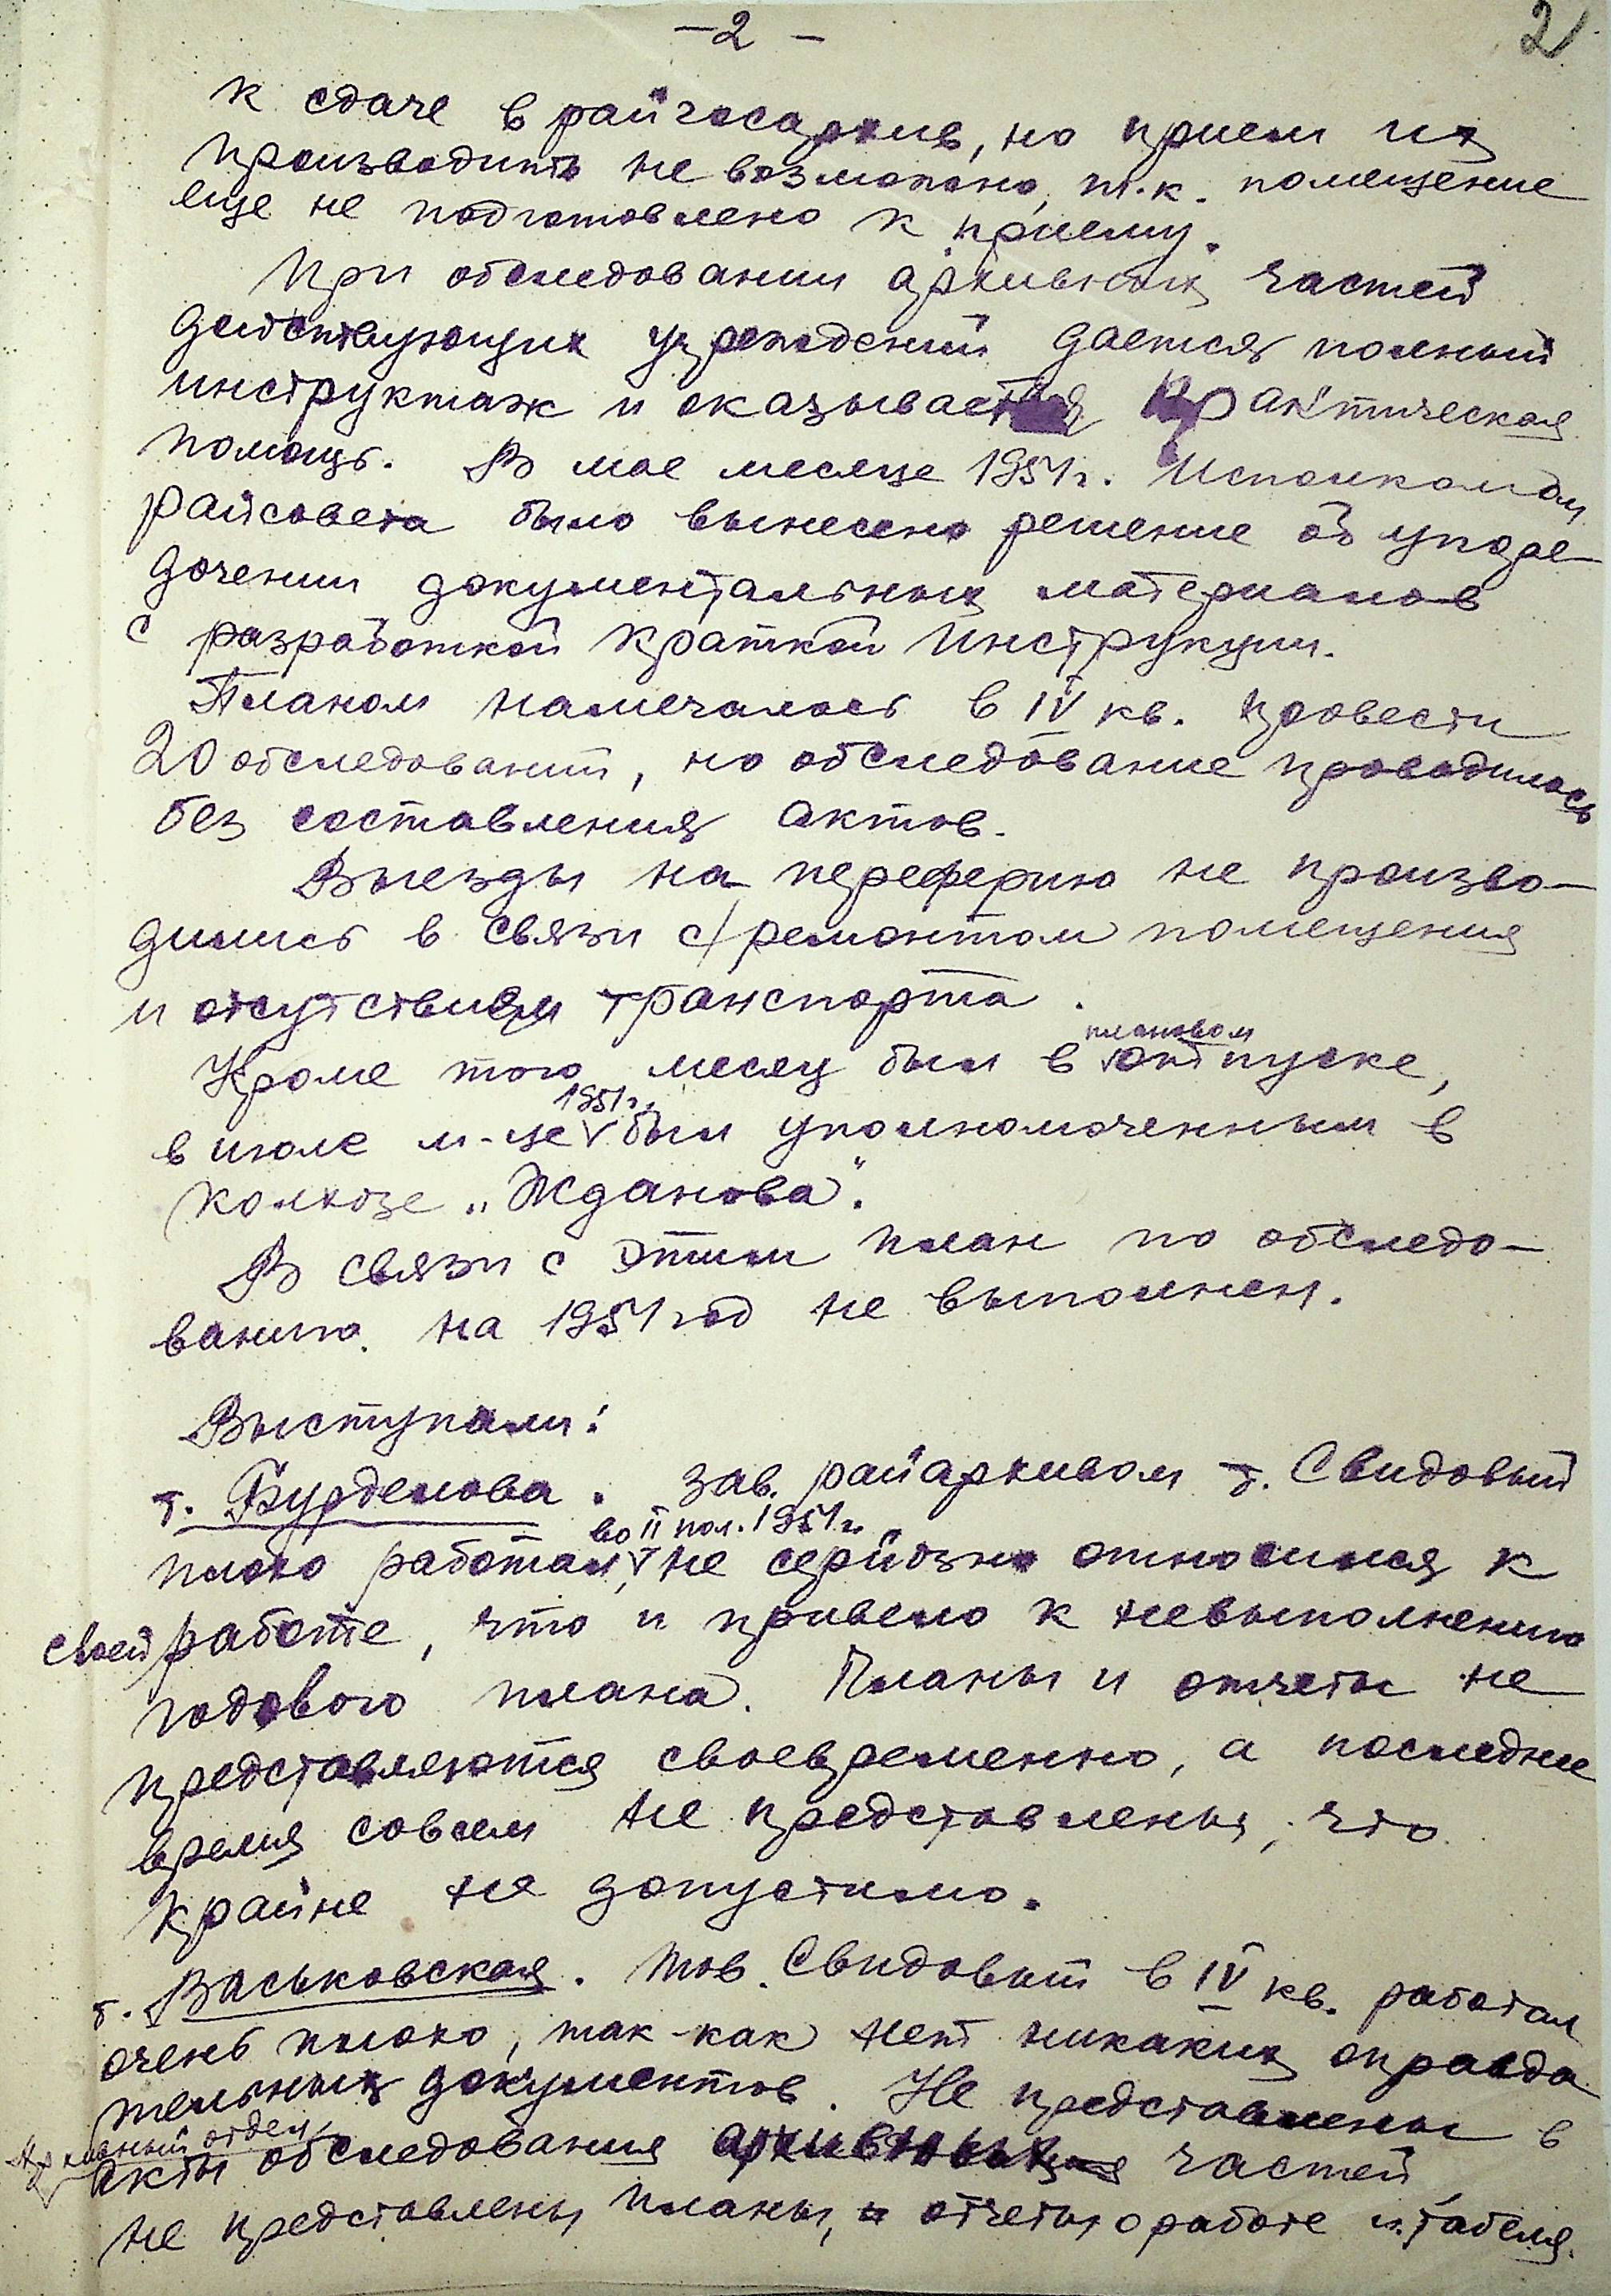 -2-
2
к сдаче в райгосархив, но прием их
производить не возможно, т.к. помещение
еще не подготовлено к приему.
При обследовании архивных частей
действующих учреждений дается полный
инструктаж и оказывается практическая
помощь. В мае месяце 1951 г. Исполкомом
райсовета было вынесено решение об упоре-
дочении документальных материалов
с разработкой краткой инструкции.
Планом намечалось в IV кв. провести
20 обследований, но обследование проводилось
без составления актов.
Выезды на переферию не произво-
дились в связи с/ремонтом помещения
и отсутствием транспорта.
плановом
Кроме того месяц был в отпуске,
1951 г.
в июле м-це был уполномоченным в
колхозе „Жданова".
В связи с этим план по обследо-
ванию на 1951 год не выполнен.
Выступали:
т. Бурденова. Зав. райархивом т. Свидовый
во II пол. 1951 г.
плохо работал, не серйозно относился к
своей работе, что и привело к невыполнению
годового плана. Планы и отчеты не
представляются своевременно, а последнее
время совсем не представлены, что
крайне не допустимо.
т. Васьковская. Тов. Свидовый в IV кв. работал
очень плохо, так-как нет никаких оправда
тельных документов. Не представлены в
Архивный отдел
акты обследования архивных частей
не представлены планы, отчеты о работе и табеля.